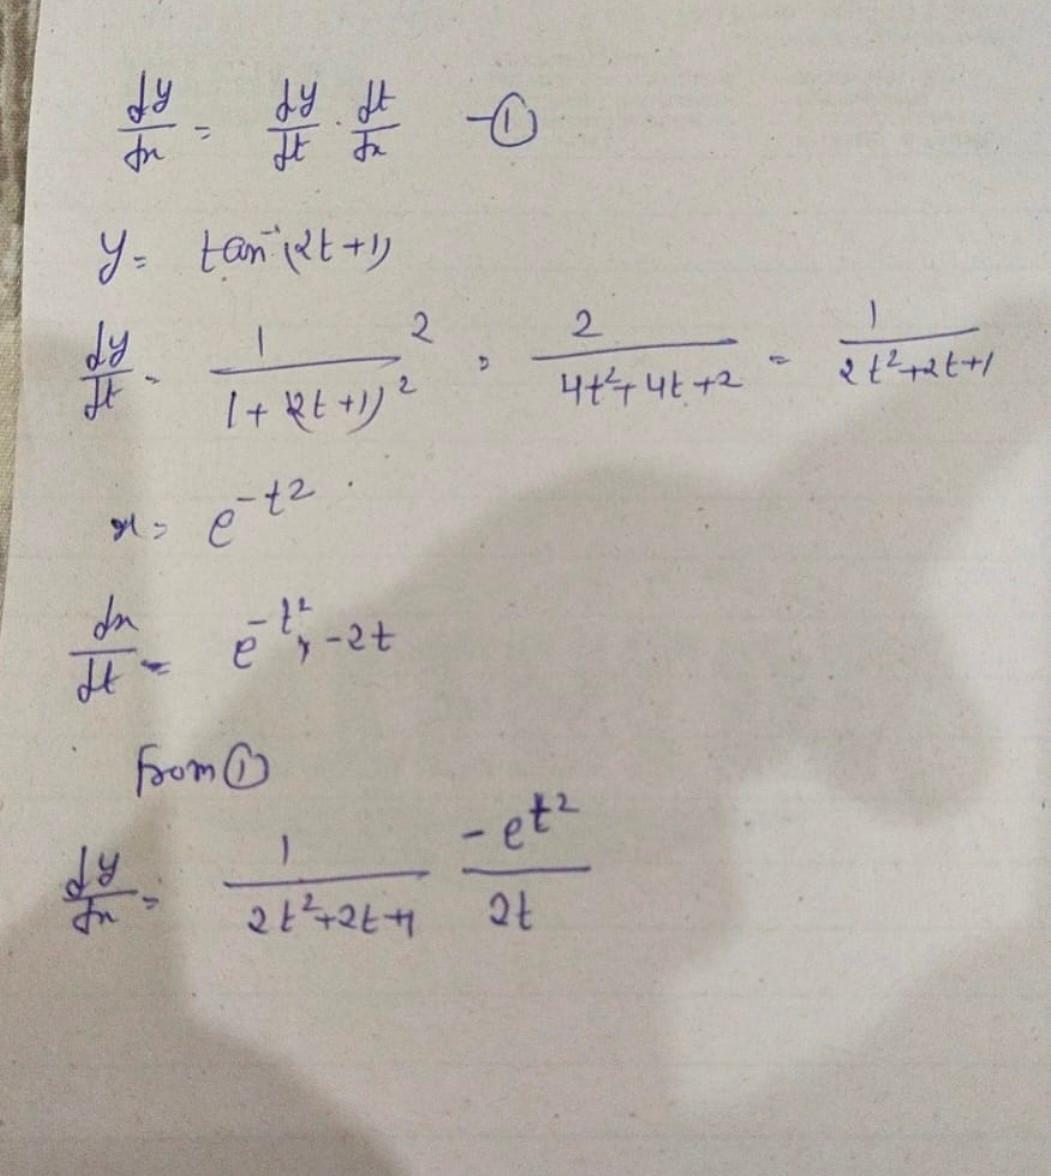 dy/dx = dy/dt · dt/dx - ①
y = tan⁻¹(2t+1)
dy/dt = 1/(1+(2t+1)²) 2 = 2/(4t²+4t+2) = 1/(2t²+2t+1)
x = e^-t2
dx/dt = e^-t², -2t
from ①
dy/dx = 1/(2t²+2t+1) -e^t²/2t